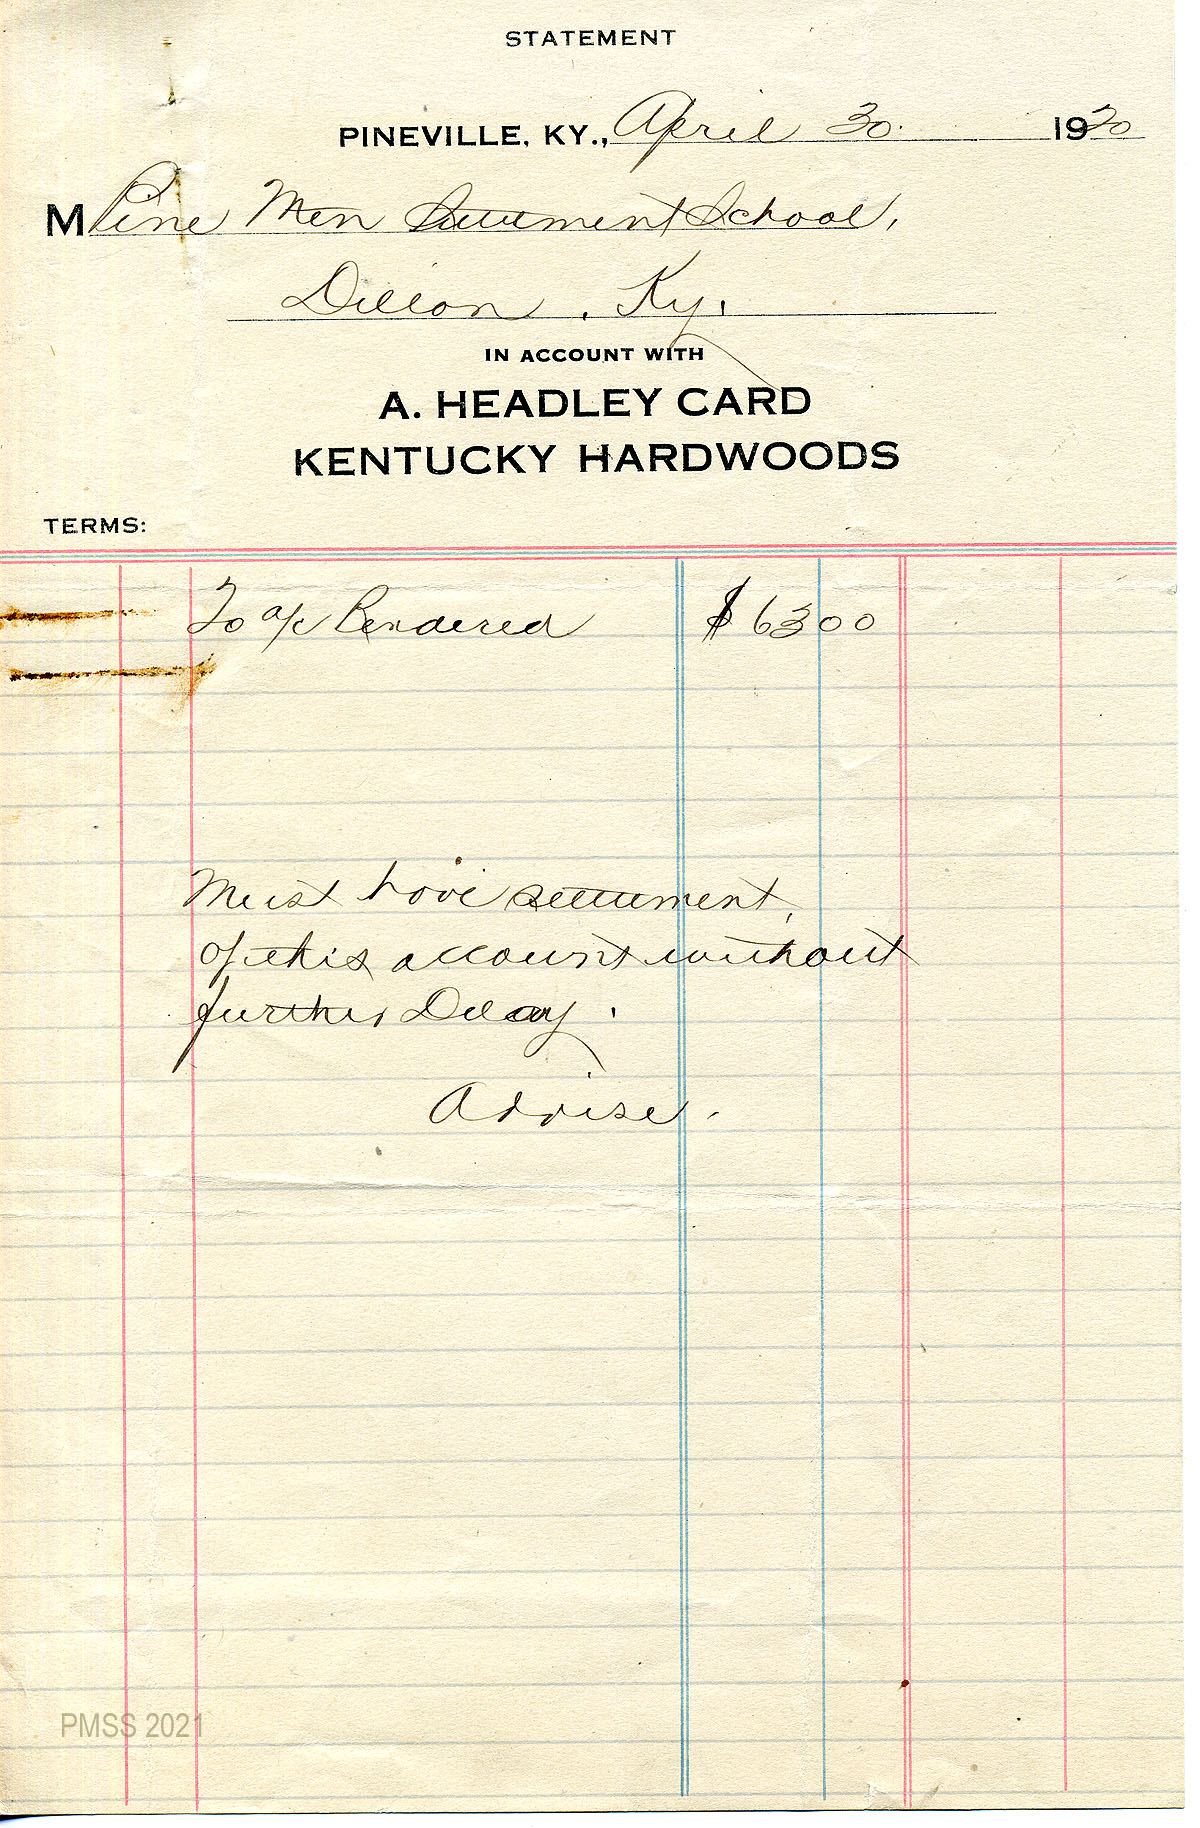 STATEMENT
PINEVILLE, KY., April 30. 1920
M Pine Mtn Settlement School,
Dillon, Ky.
IN ACCOUNT WITH
A. HEADLEY CARD
KENTUCKY HARDWOODS
TERMS:
To a/c Rendered $ 63 00
Must have settlement,
of this account without
further Delay.
Advise.
PMSS 2021